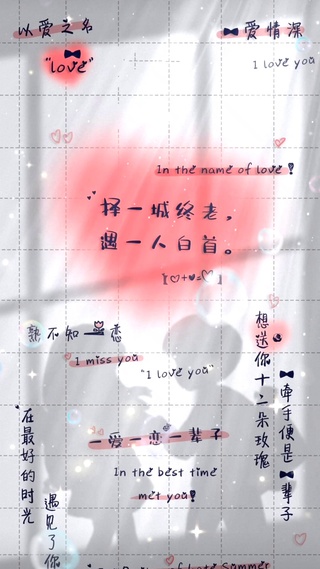 以爱之名
爱情深
"love"
I love you
In the name of love!
择一城终老，
遇一人白首。
孰不知 恋
I miss you
"I love you"
想送你十二朵玫瑰
牵手便是 辈子
一爱一恋一辈子
In the best time
met you!
在最好的时光
遇见了你